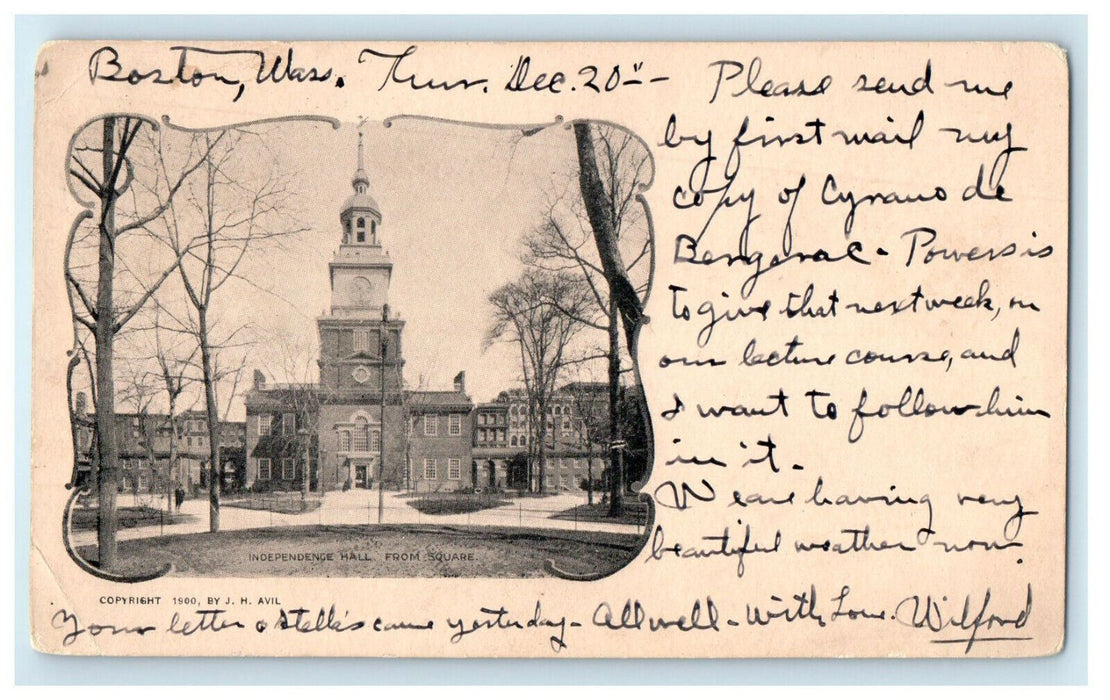 Boston, Mass. Thur. Dec. 20th –
Please send me
by first mail my
copy of Cyrano de
Bergerac – Powers is
to give that next week, in
our lecture course, and
I want to follow him
in it.
We are having very
beautiful weather now.
INDEPENDENCE HALL FROM SQUARE.
COPYRIGHT 1900, BY J. H. AVIL
Your letter & Stella's came yesterday – All well – With Love. Wilford